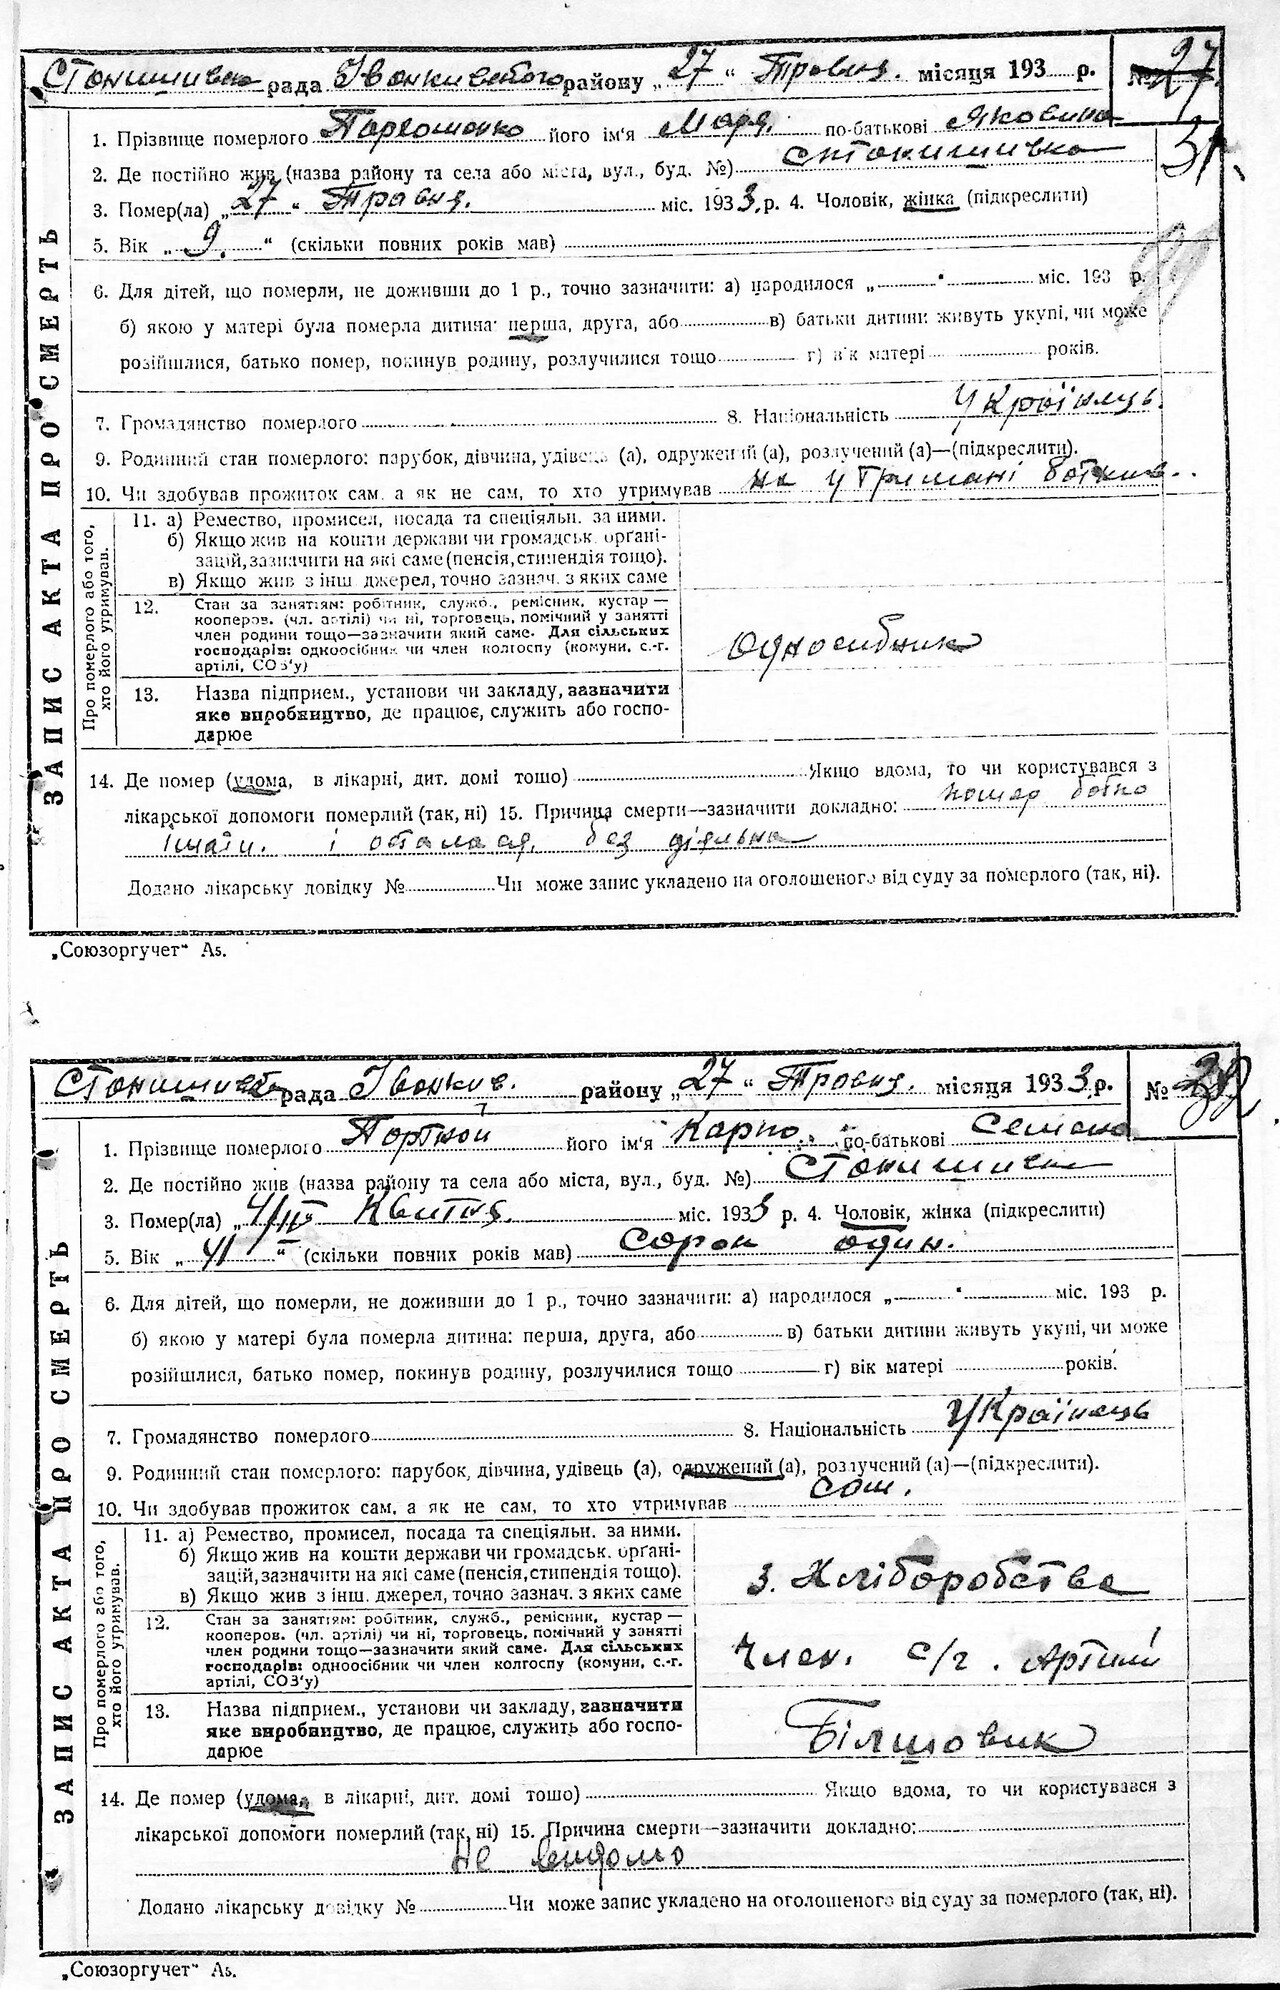 Станишівка рада Іванківського району „27“ Травня. місяця 193 р. № 27
31.
1. Прізвище померлого Пархоменко його ім'я Марія по-батькові Яковина
2. Де постійно жив (назва району та села або міста, вул., буд. №) Станишівка
3. Помер(ла) „27“ Травня. міс. 1933 р. 4. Чоловік, жінка (підкреслити)
5. Вік „9.“ (скільки повних років мав)
6. Для дітей, що померли, не доживши до 1 р., точно зазначити: а) народилося „ “ міс. 193 р.
б) якою у матері була померла дитина: перша, друга, або в) батьки дитини живуть укупі, чи може
розійшлися, батько помер, покинув родину, розлучилися тощо г) вік матері років.
7. Громадянство померлого 8. Національність Українець
9. Родинний стан померлого: парубок, дівчина, удівець (а), одружений (а), розлучений (а)—(підкреслити).
10. Чи здобував прожиток сам, а як не сам, то хто утримував на утримані батьків
ЗАПИС АКТА ПРО СМЕРТЬ
Про померлого або того, хто його утримував.
11. а) Ремество, промисел, посада та спеціяльн. за ними.
б) Якщо жив на кошти держави чи громадськ. орґані-
зацій, зазначити на які саме (пенсія, стипендія тощо).
в) Якщо жив з інш. джерел, точно зазнач. з яких саме
12. Стан за занятіям: робітник, служб., ремісник, кустар —
кооперов. (чл. артілі) чи ні, торговець, помічний у занятті
член родини тощо—зазначити який саме. Для сільських
господарів: одноосібник чи член колгоспу (комуни, с.-г.
артілі, СОЗ'у)
Односибник
13. Назва підприєм., установи чи закладу, зазначити
яке виробництво, де працює, служить або госпо-
дарює
14. Де помер (удома, в лікарні, дит. домі тощо) Якщо вдома, то чи користувався з
лікарської допомоги померлий (так, ні) 15. Причина смерти—зазначити докладно: помер батко
і мати. і осталася без діяльна
Додано лікарську довідку № Чи може запис укладено на оголошеного від суду за померлого (так, ні).
„Союзоргучет“ А5.
Станишівська рада Іванків. району „27“ Травня. місяця 1933 р. № 32
1. Прізвище померлого Портной його ім'я Карпо по-батькові Семена
2. Де постійно жив (назва району та села або міста, вул., буд. №) Станишівка
3. Помер(ла) „4/IV“ Квітня. міс. 1933 р. 4. Чоловік, жінка (підкреслити)
5. Вік „41“ (скільки повних років мав) сорок один.
6. Для дітей, що померли, не доживши до 1 р., точно зазначити: а) народилося „ “ міс. 193 р.
б) якою у матері була померла дитина: перша, друга, або в) батьки дитини живуть укупі, чи може
розійшлися, батько помер, покинув родину, розлучилися тощо г) вік матері років.
7. Громадянство померлого 8. Національність Українець
9. Родинний стан померлого: парубок, дівчина, удівець (а), одружений (а), розлучений (а)—(підкреслити).
10. Чи здобував прожиток сам, а як не сам, то хто утримував сам.
ЗАПИС АКТА ПРО СМЕРТЬ
Про померлого або того, хто його утримував.
11. а) Ремество, промисел, посада та спеціяльн. за ними.
б) Якщо жив на кошти держави чи громадськ. орґані-
зацій, зазначити на які саме (пенсія, стипендія тощо).
в) Якщо жив з інш. джерел, точно зазнач. з яких саме
З. Хліборобства
12. Стан за занятіям: робітник, служб., ремісник, кустар —
кооперов. (чл. артілі) чи ні, торговець, помічний у занятті
член родини тощо—зазначити який саме. Для сільських
господарів: одноосібник чи член колгоспу (комуни, с.-г.
артілі, СОЗ'у)
Член. с/г. Артилі
13. Назва підприєм., установи чи закладу, зазначити
яке виробництво, де працює, служить або госпо-
дарює
Білшовик
14. Де помер (удома, в лікарні, дит. домі тощо) Якщо вдома, то чи користувався з
лікарської допомоги померлий (так, ні) 15. Причина смерти—зазначити докладно:
не видомо
Додано лікарську довідку № Чи може запис укладено на оголошеного від суду за померлого (так, ні).
„Союзоргучет“ А5.